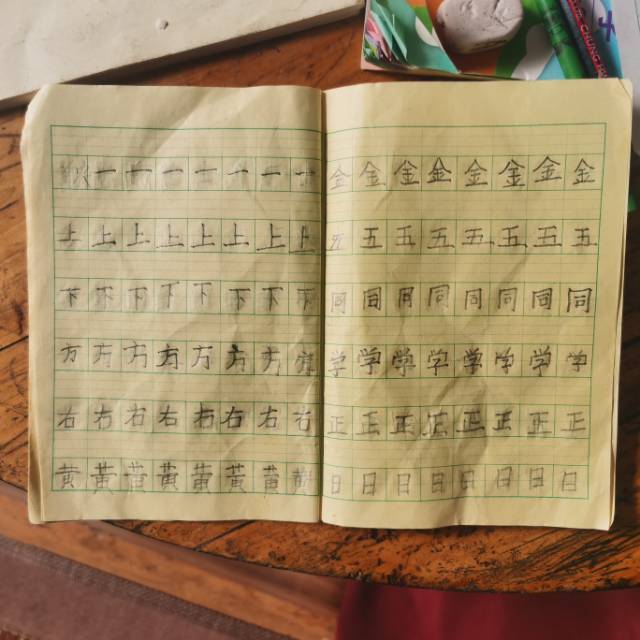 一 一 一 一 一
上 上 上 上 上 上 上 上
下 下 下 下 下 下 下 下
方 方 方 方 方 方 方
右 右 右 右 右 右 右 右
黄 黄 黄 黄 黄 黄 黄
金 金 金 金 金 金 金 金
五 五 五 五 五 五 五 五
同 同 同 同 同 同 同 同
学 学 学 学 学 学 学 学
正 正 正 正 正 正 正 正
日 日 日 日 日 日 日 日